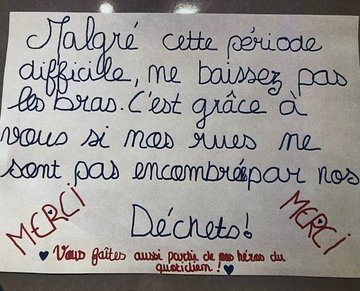 Malgré cette période
difficile, ne baissez pas
les bras. C'est grâce à
vous si nos rues ne
sont pas encombrés par nos
Déchets!
MERCI
MERCI
Vous faîtes aussi partie de nos héros du
quotidien !